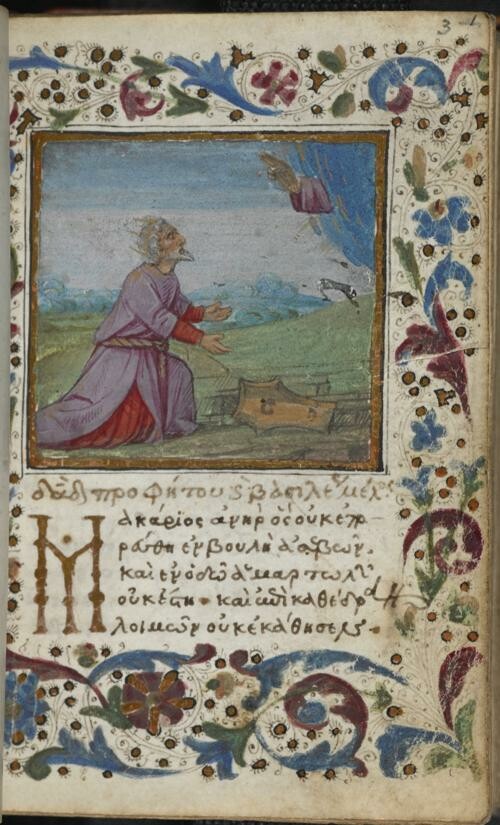 3
δα̅δ προφήτου ϛ βασιλέ μέλ
Μακάριος ἀνὴρ ὃς οὐκ ἐπο
ράθη ἐν βουλῇ ἀσεβῶν.
καὶ ἐν ὁδῷ ἁμαρτωλῶ
οὐκ ἔστη· καὶ ἐπὶ καθέδρα
λοιμῶν οὐκ ἐκάθησεν.